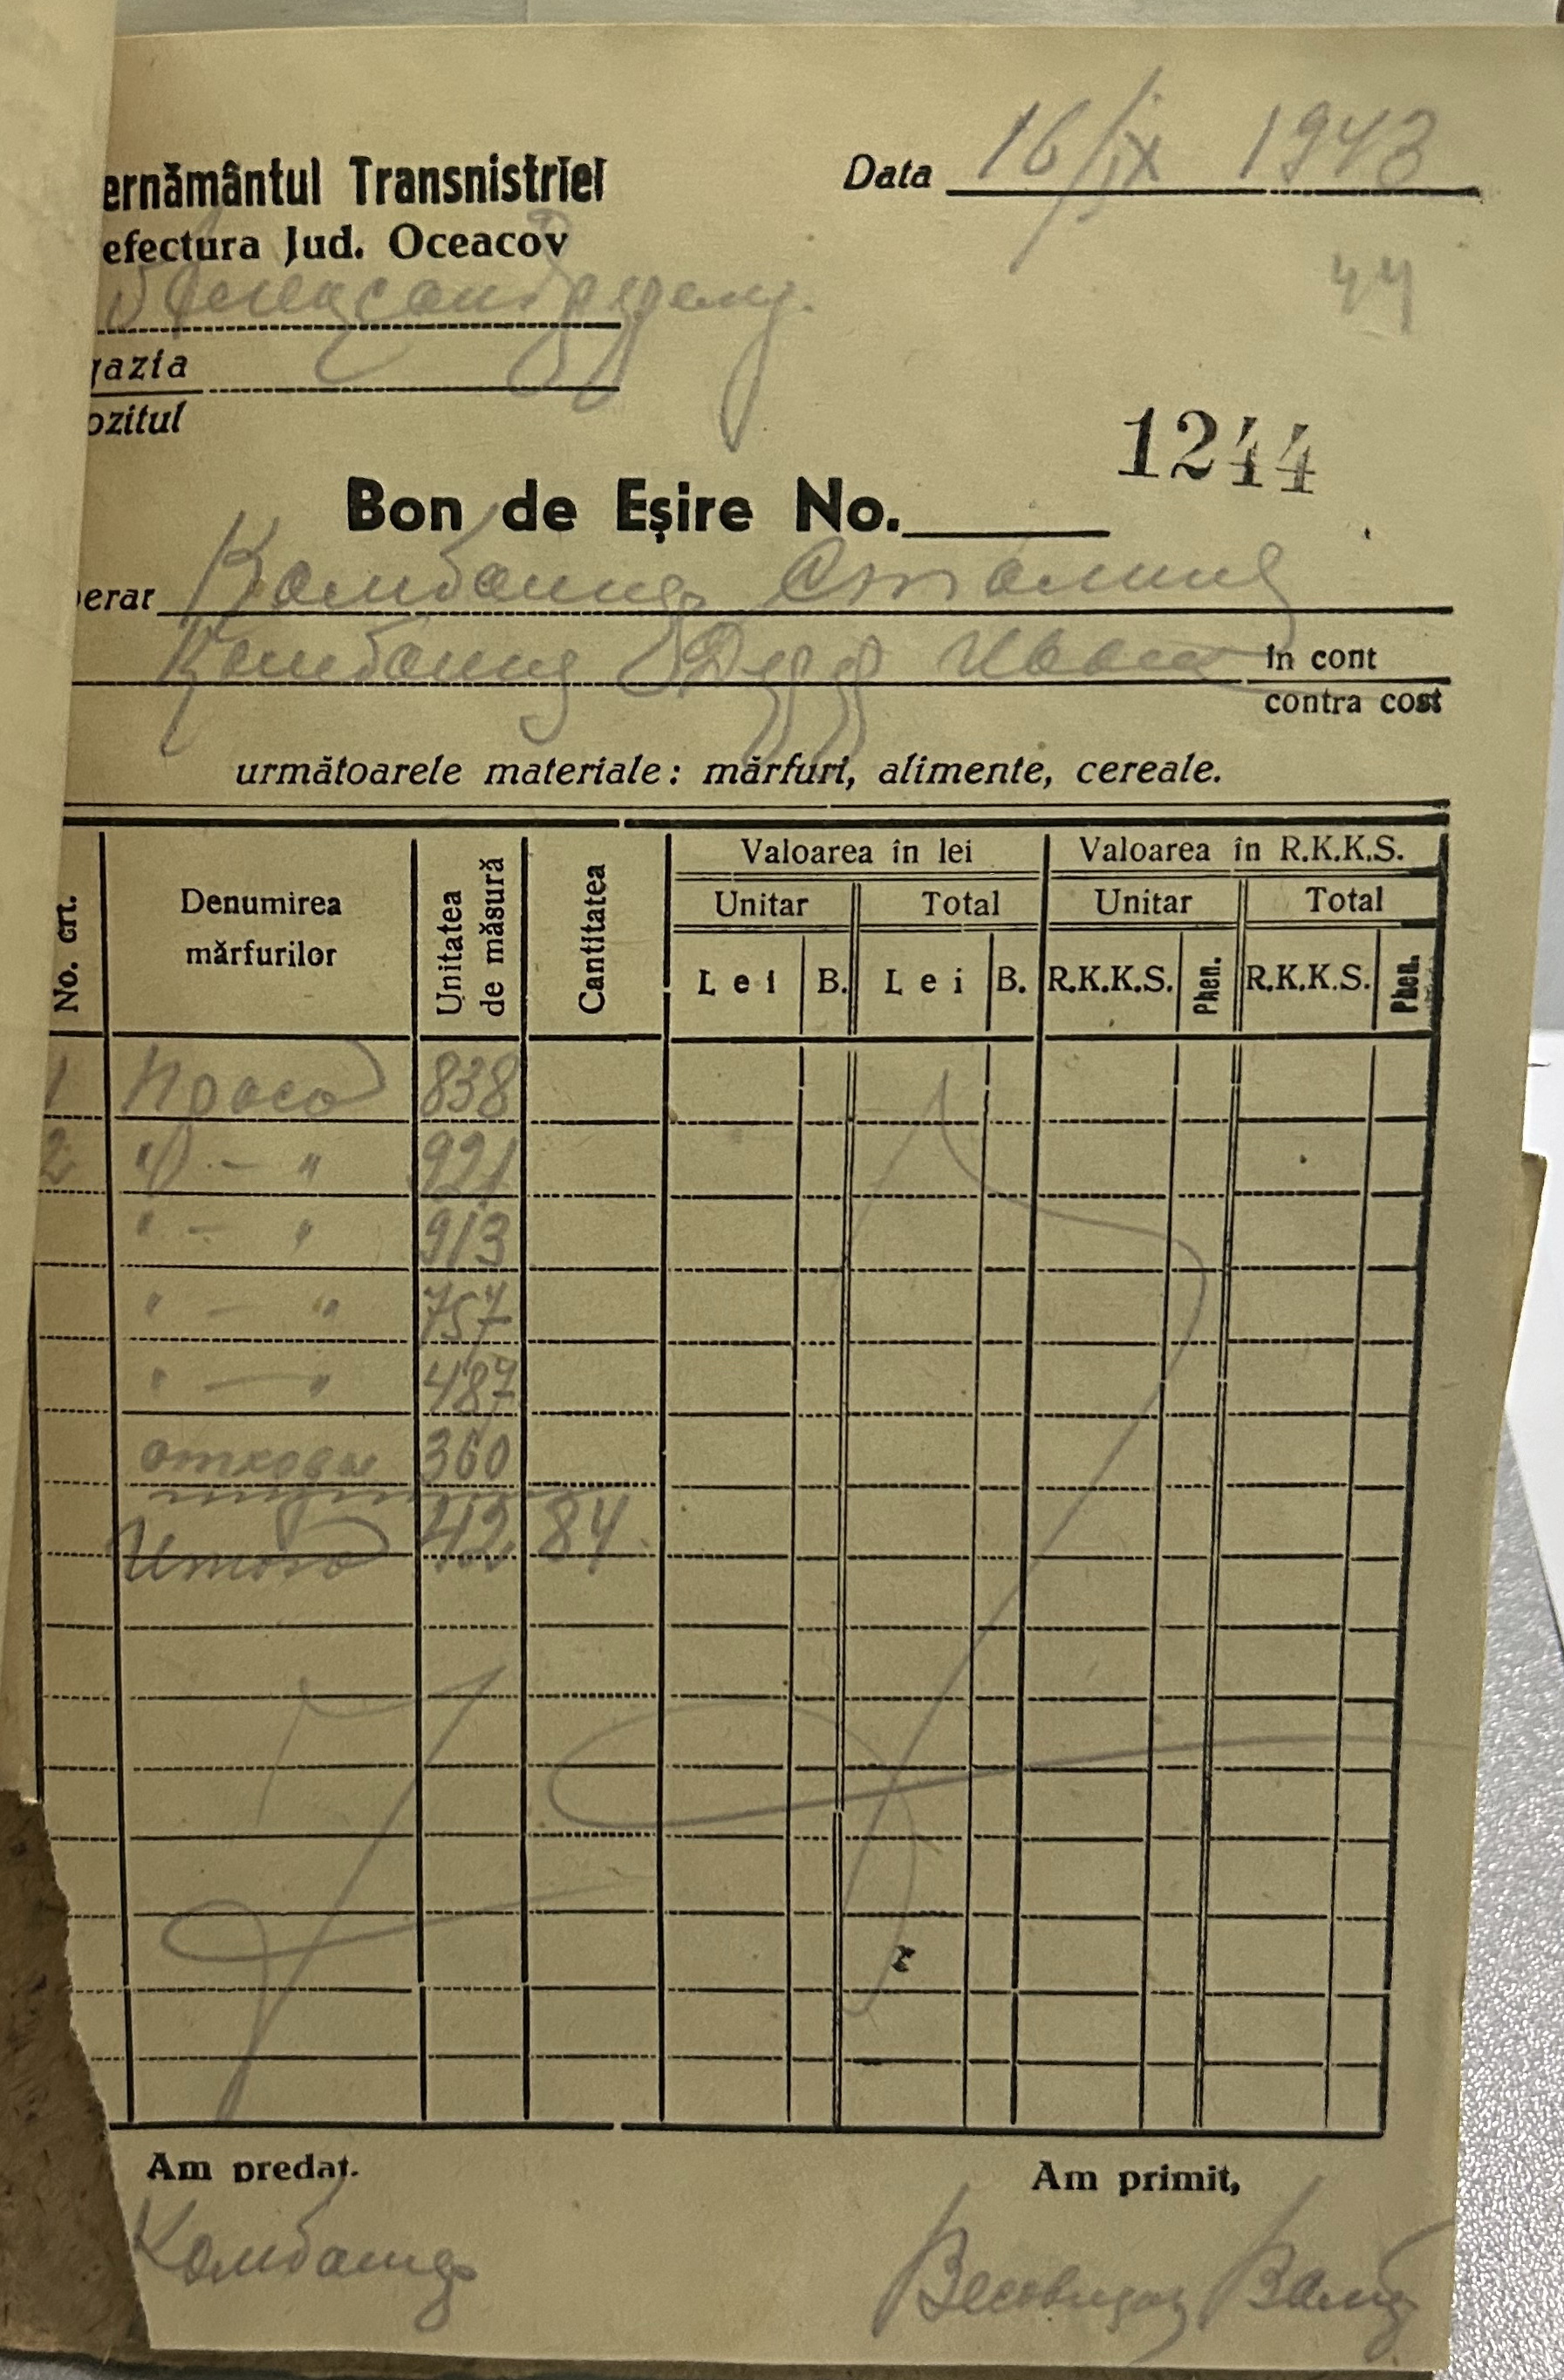 ernământul Transnistriei
Data 16/IX 1943
efectura Jud. Oceacov
44
gazia
ozitul
1244
Bon de Eşire No.
erat Комбайнер
Комбайнер Иван in cont
contra cost
următoarele materiale: mărfuri, alimente, cereale.
No. crt. Denumirea mărfurilor Unitatea de măsură Cantitatea Valoarea în lei Valoarea în R.K.K.S.
Unitar Total Unitar Total
Lei B. Lei B. R.K.K.S. Phen. R.K.K.S. Phen.
1 Просо 838
2 " — " 921
" — " 913
" — " 757
" — " 487
отходы 360
Итого 42 84
Am predat. Am primit,
Комбайнер Весовщик